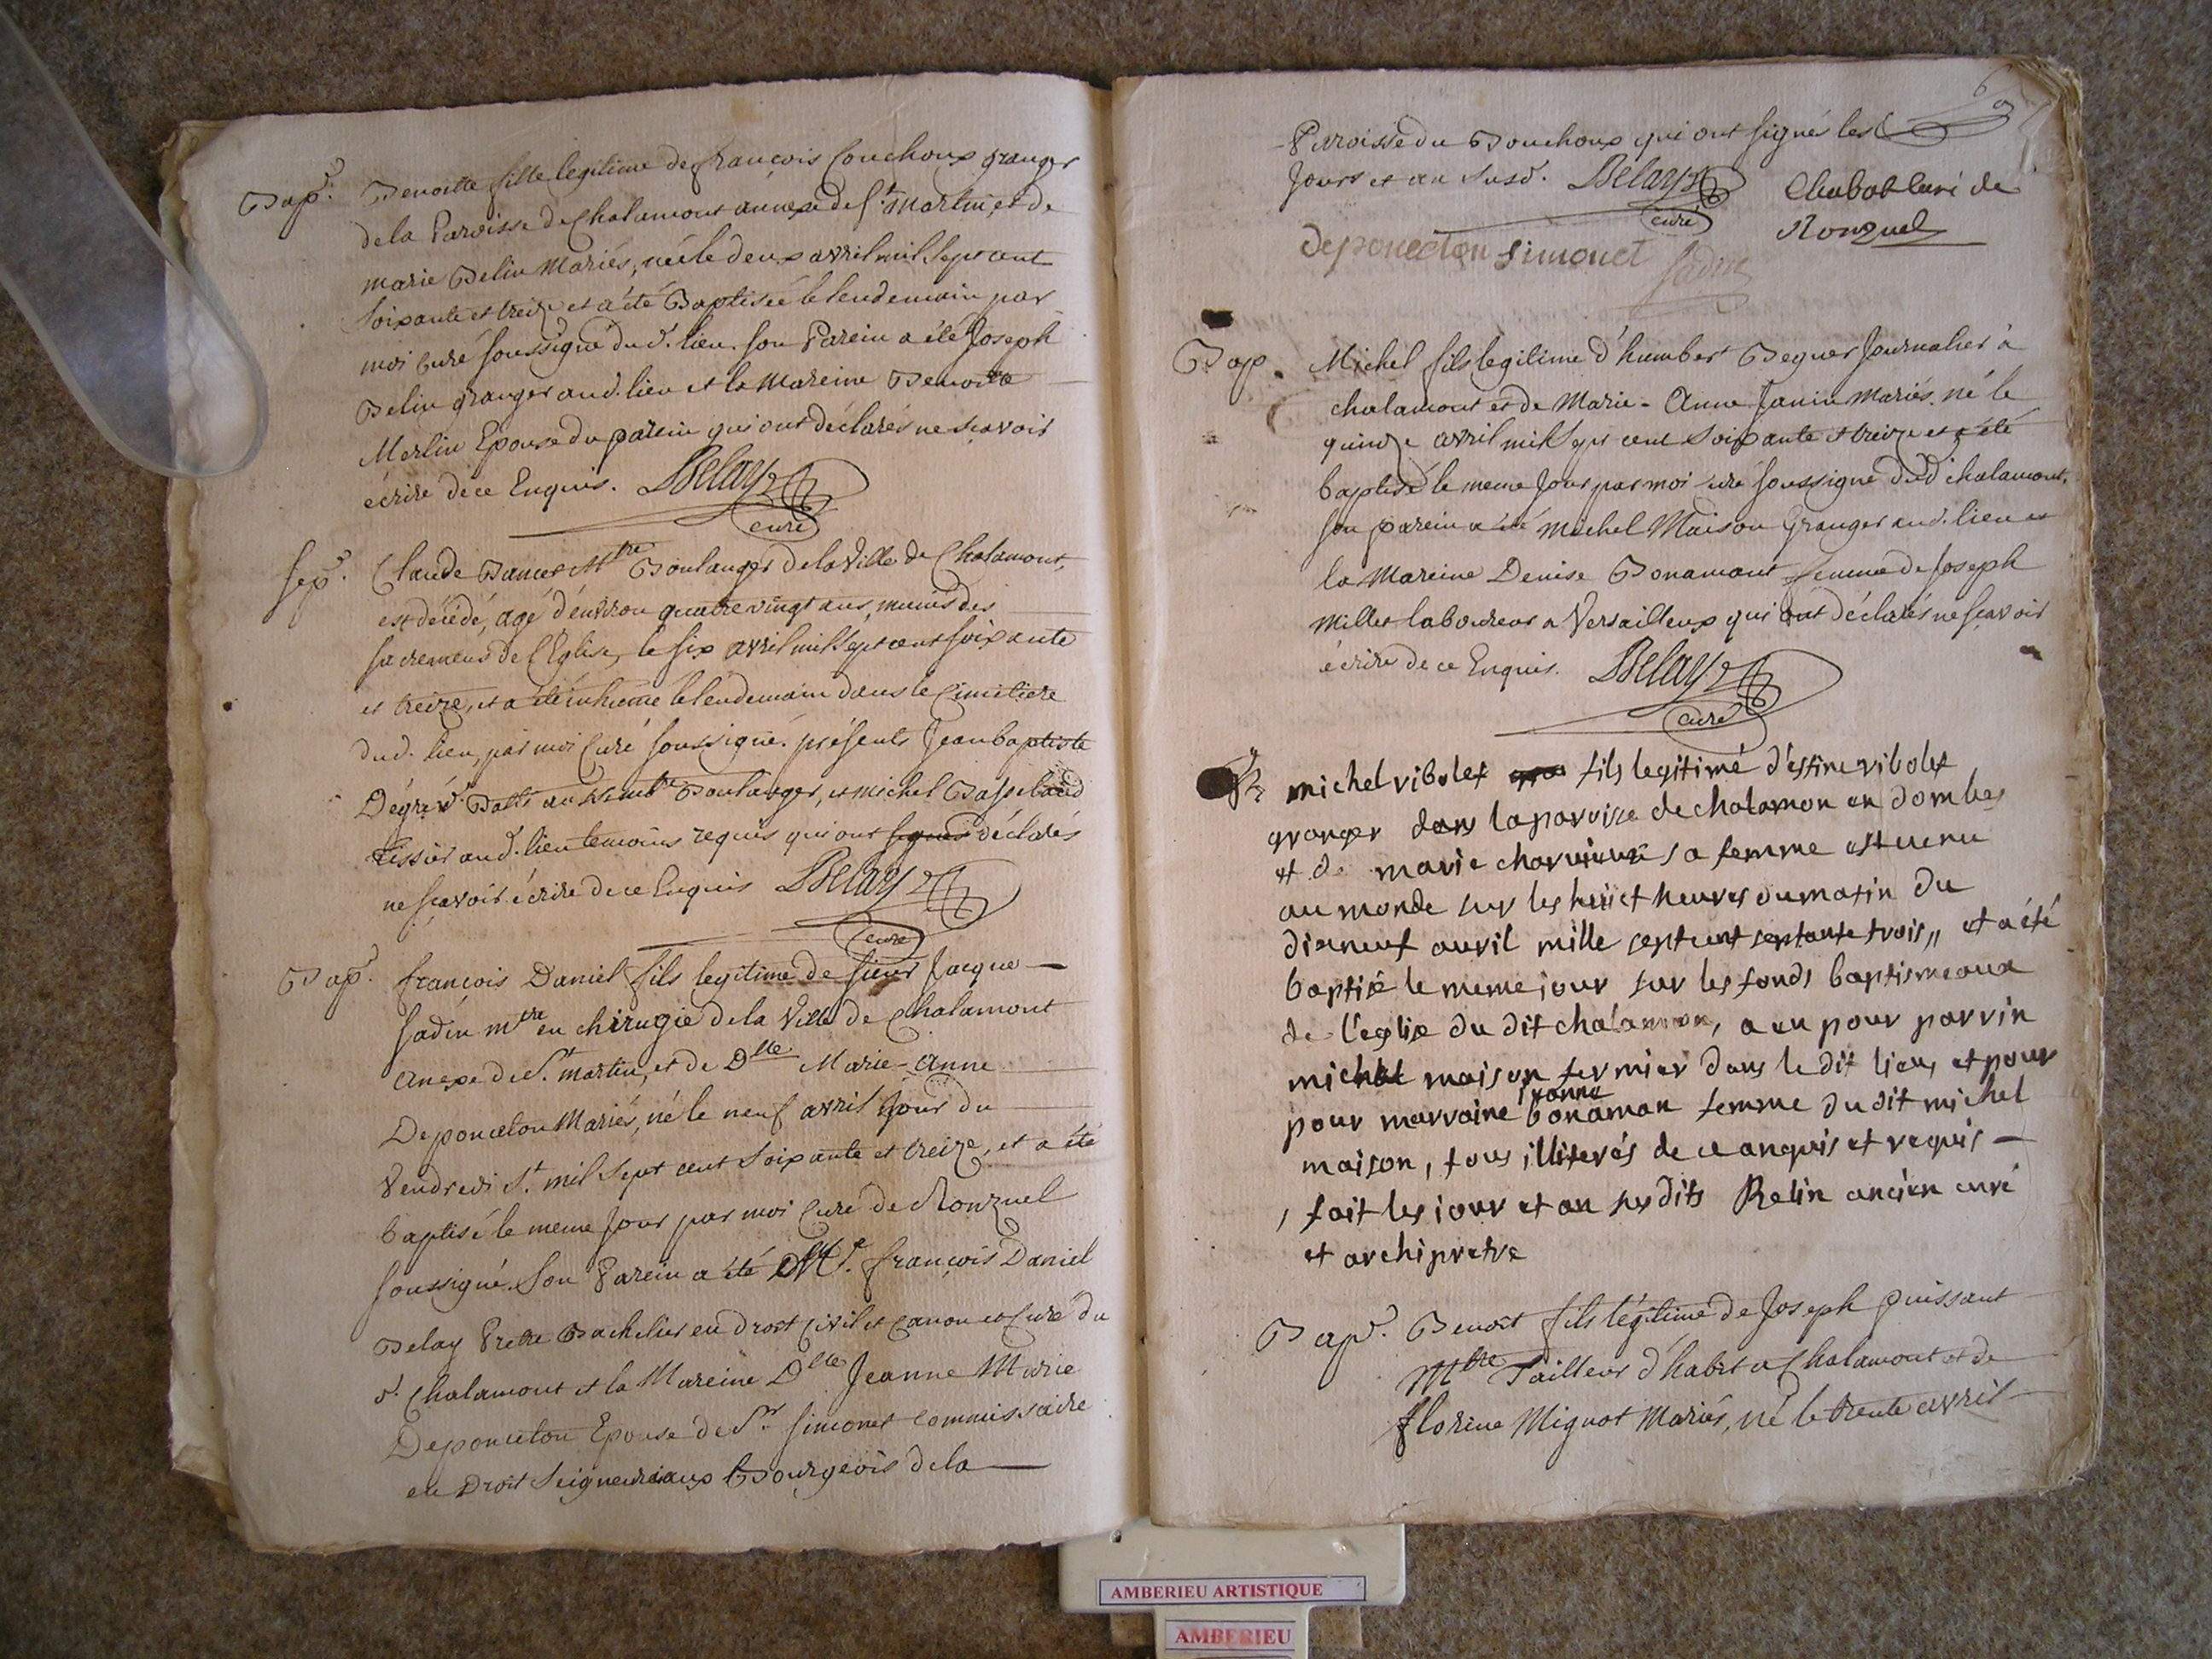 Bap.t Benoitte fille legitime de françois Couchoux granger
de la Paroisse de Chalamont annexe de St. Martin, et de
marie Belin Mariés, née le deux avril mil sept cent
soixante et treize et a été Baptisée le lendemain par
moi curé soussigné du d. lieu. son Parein a été Joseph
Belin granger aud. lieu et la Mareine Benoite
Merlin Epouse du parein qui ont déclarés ne sçavoir
écrire de ce Enquis. Belay
curé
sep.t Claude Mtre Boulanger de la Ville de Chalamont,
est décédé, agé d'environ quatre vingt ans, munis des
sacremens de l'Eglise, le six avril mil sept cent soixante
et treize, et a été inhumé le lendemain dans le Cimetiere
dud. lieu, par moi Curé soussigné. présents Jean baptiste
Boulanger, et michel
Tissier aud. lieu temoins requis qui ont signés déclarés
ne sçavoir écrire de ce Enquis Belay
curé
Bap.t françois Daniel fils legitime de sieur Jacque
sadin mtre en chirugie de la Ville de Chalamont
anexe de St. martin, et de Dlle Marie-Anne
Deponceton Mariés, né le neuf avril jour du
Vendredi St. mil sept cent soixante et treize, et a été
baptisé le meme jour par moi Curé de Ronzuel
soussigné. Son Parein a été Mre. françois Daniel
Belay Pretre Bachelier en droit Civil et Canon et Curé du
d. Chalamont et la Mareine Dlle Jeanne Marie
Deponceton Epouse de Sr. simonet commissaire
en Droit Seigneuriaux Bourgeois de la
6
Paroisse du Bouchoux qui ont signé les
Jours et an susd. Belay Chabot Curé de
curé Ronzuel
deponceton simonet sadin
Bap. Michel fils legitime d'humbert Beguer Journalier à
chalamont et de Marie-Anne Janin Mariés. né le
quinze avril mil sept cent soixante et treize et a été
baptisé le meme jour par moi curé soussigné dud chalamont.
son parein a été michel Maison Granger aud. lieu et
la Mareine Denise Bonamant femme de Joseph
Millet laboureur a Versailleux qui ont déclarés ne sçavoir
écrire de ce Enquis. Belay
curé
michel vibolet fils legitime d'estine vibolet
granger dans la paroisse de chalamon en dombes
et de marie charvieux sa femme est venu
au monde sur les huict heures du matin du
dixneuf avril mille septcent septante trois,, et a été
baptisé le meme jour sur les fonds baptismeaux
de l'eglise du dit chalamon, a eu pour parrin
michel maison fermier dans le dit lieu, et pour
pour marraine bonamon femme du dit michel
maison, tous illiterés de ce anquis et requis
, fait les jour et an susdits Relin ancien curé
et archipretre
Bap.t Benoit fils légitime de Joseph Puissant
Mtre Tailleur d'habit a Chalamont et de
florine Mignot Mariés, né le trente avril
AMBERIEU ARTISTIQUE
AMBERIEU